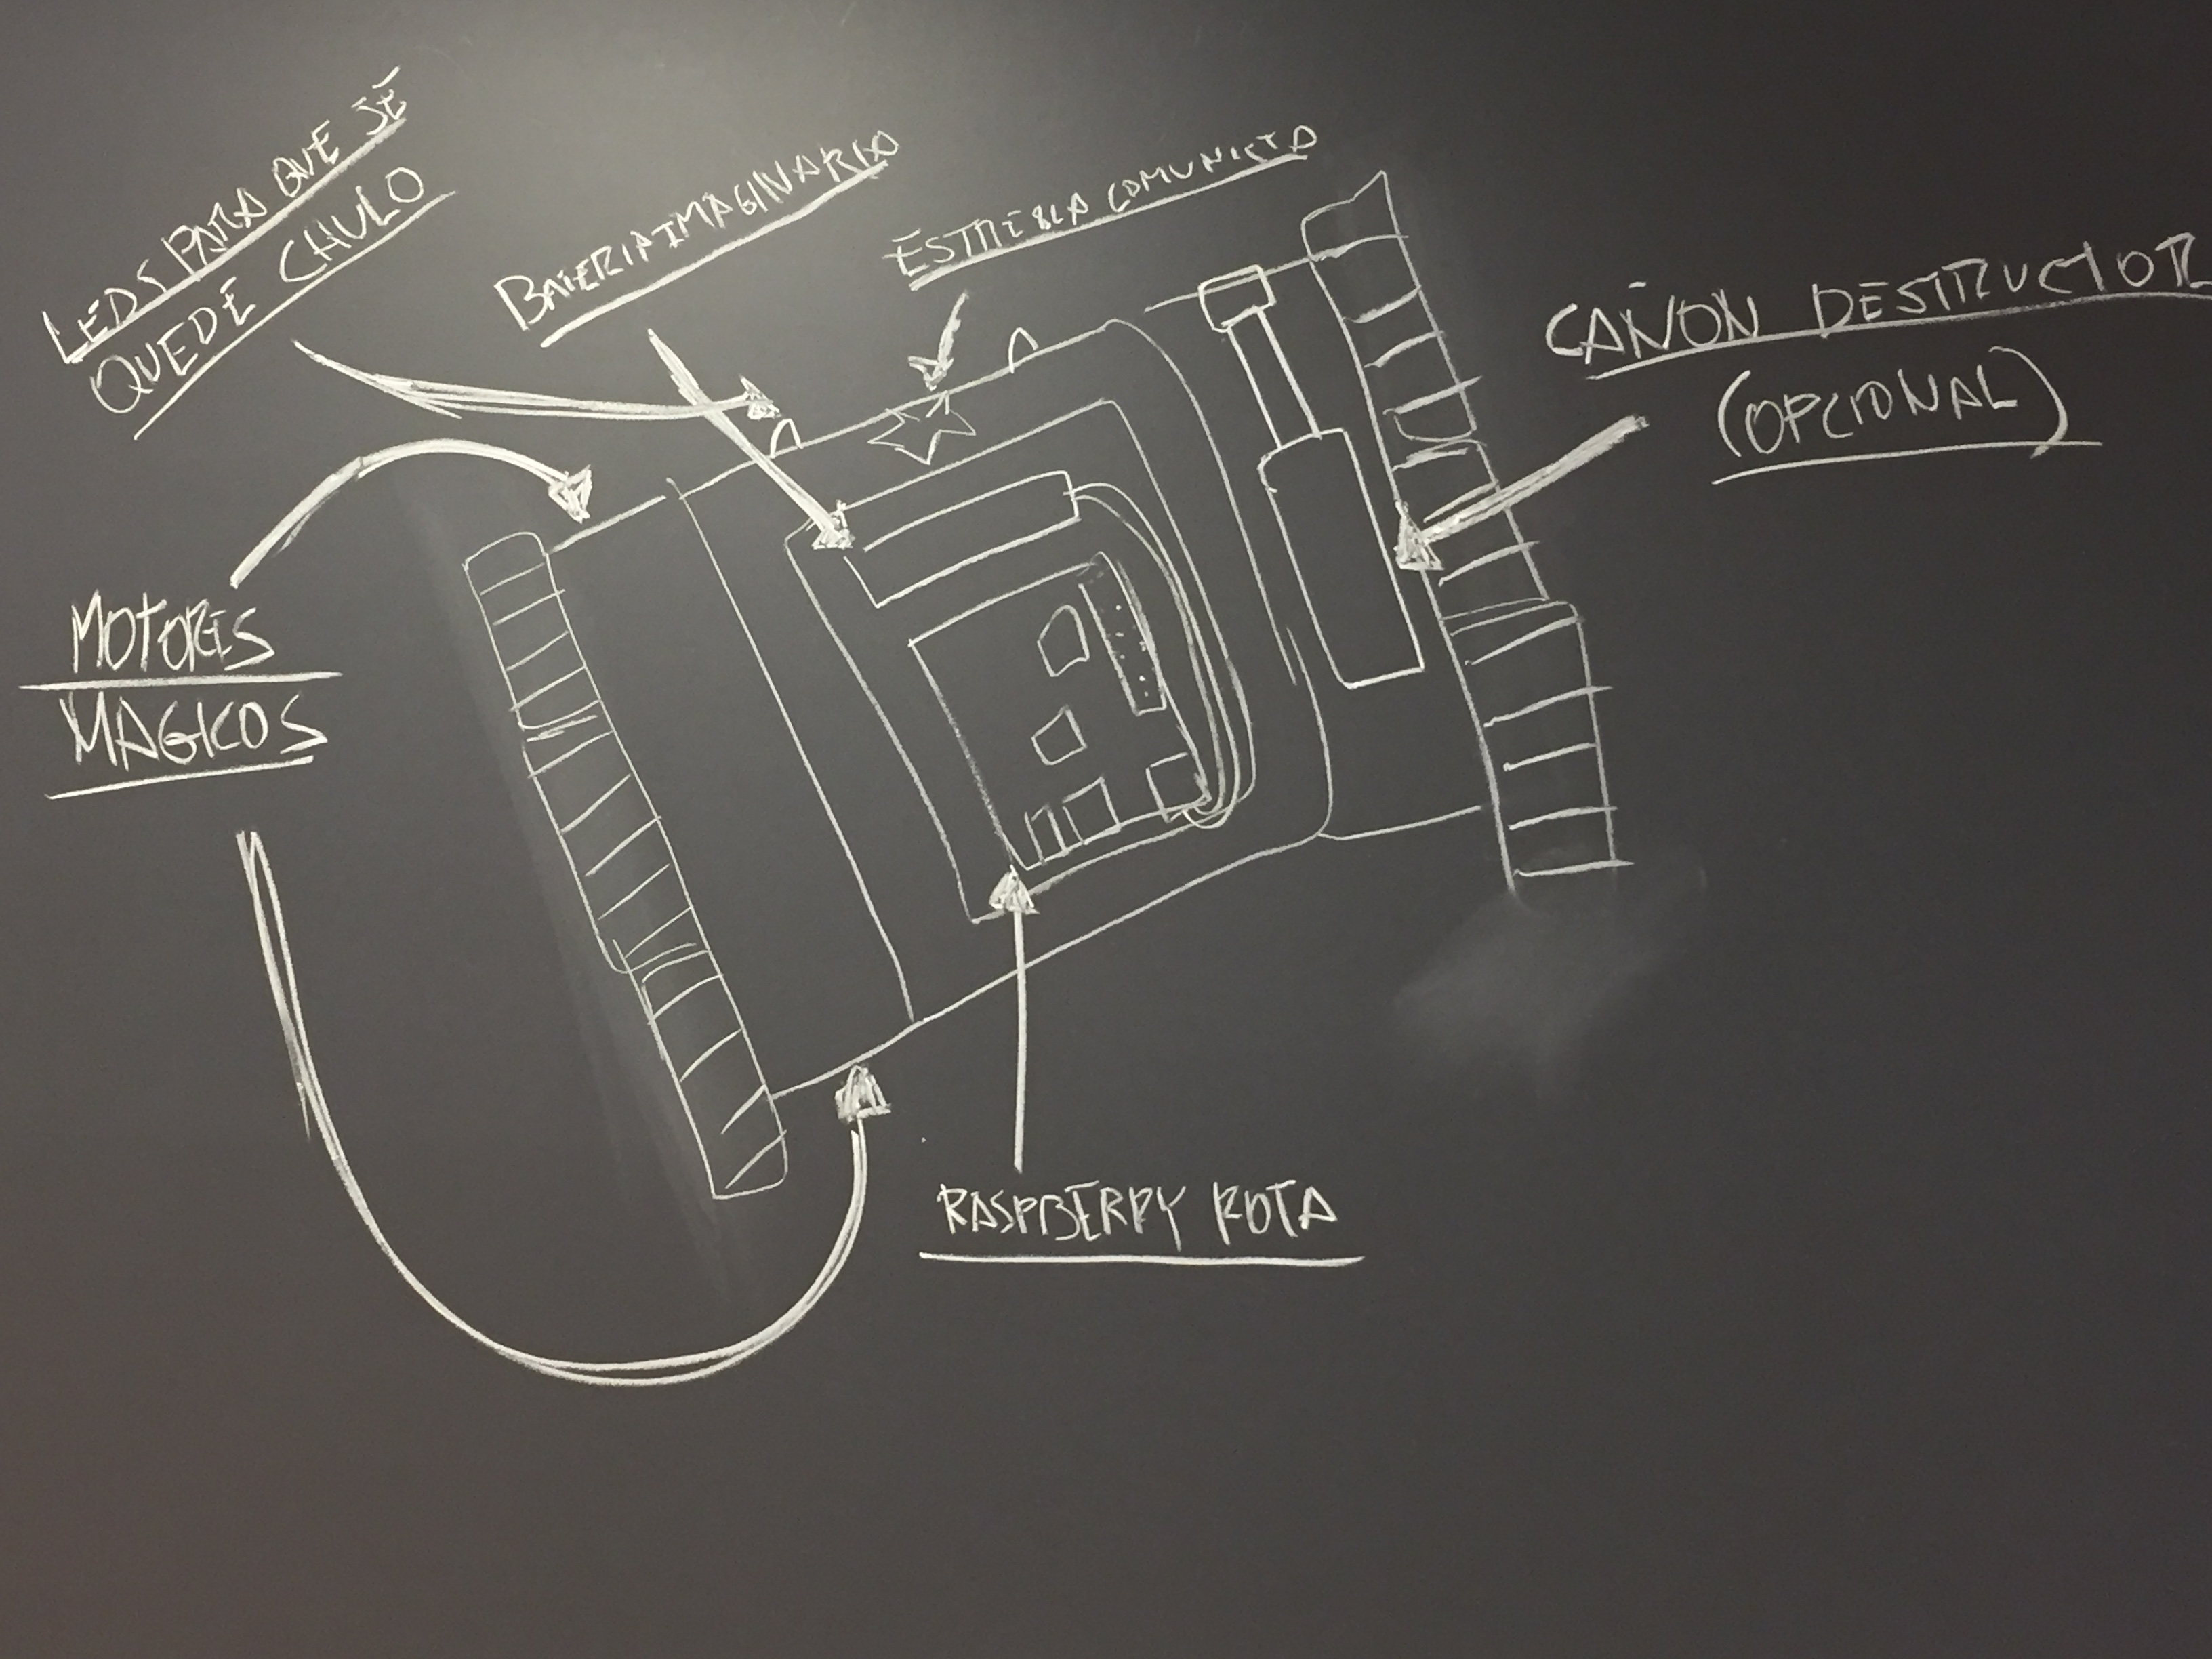 LEDS PARA QUE SE
QUEDE CHULO
BATERIA IMAGINARIA
ESTRELLA COMUNISTA
CAÑON DESTRUCTOR
(OPCIONAL)
MOTORES
MAGICOS
RASPBERRY ROTA